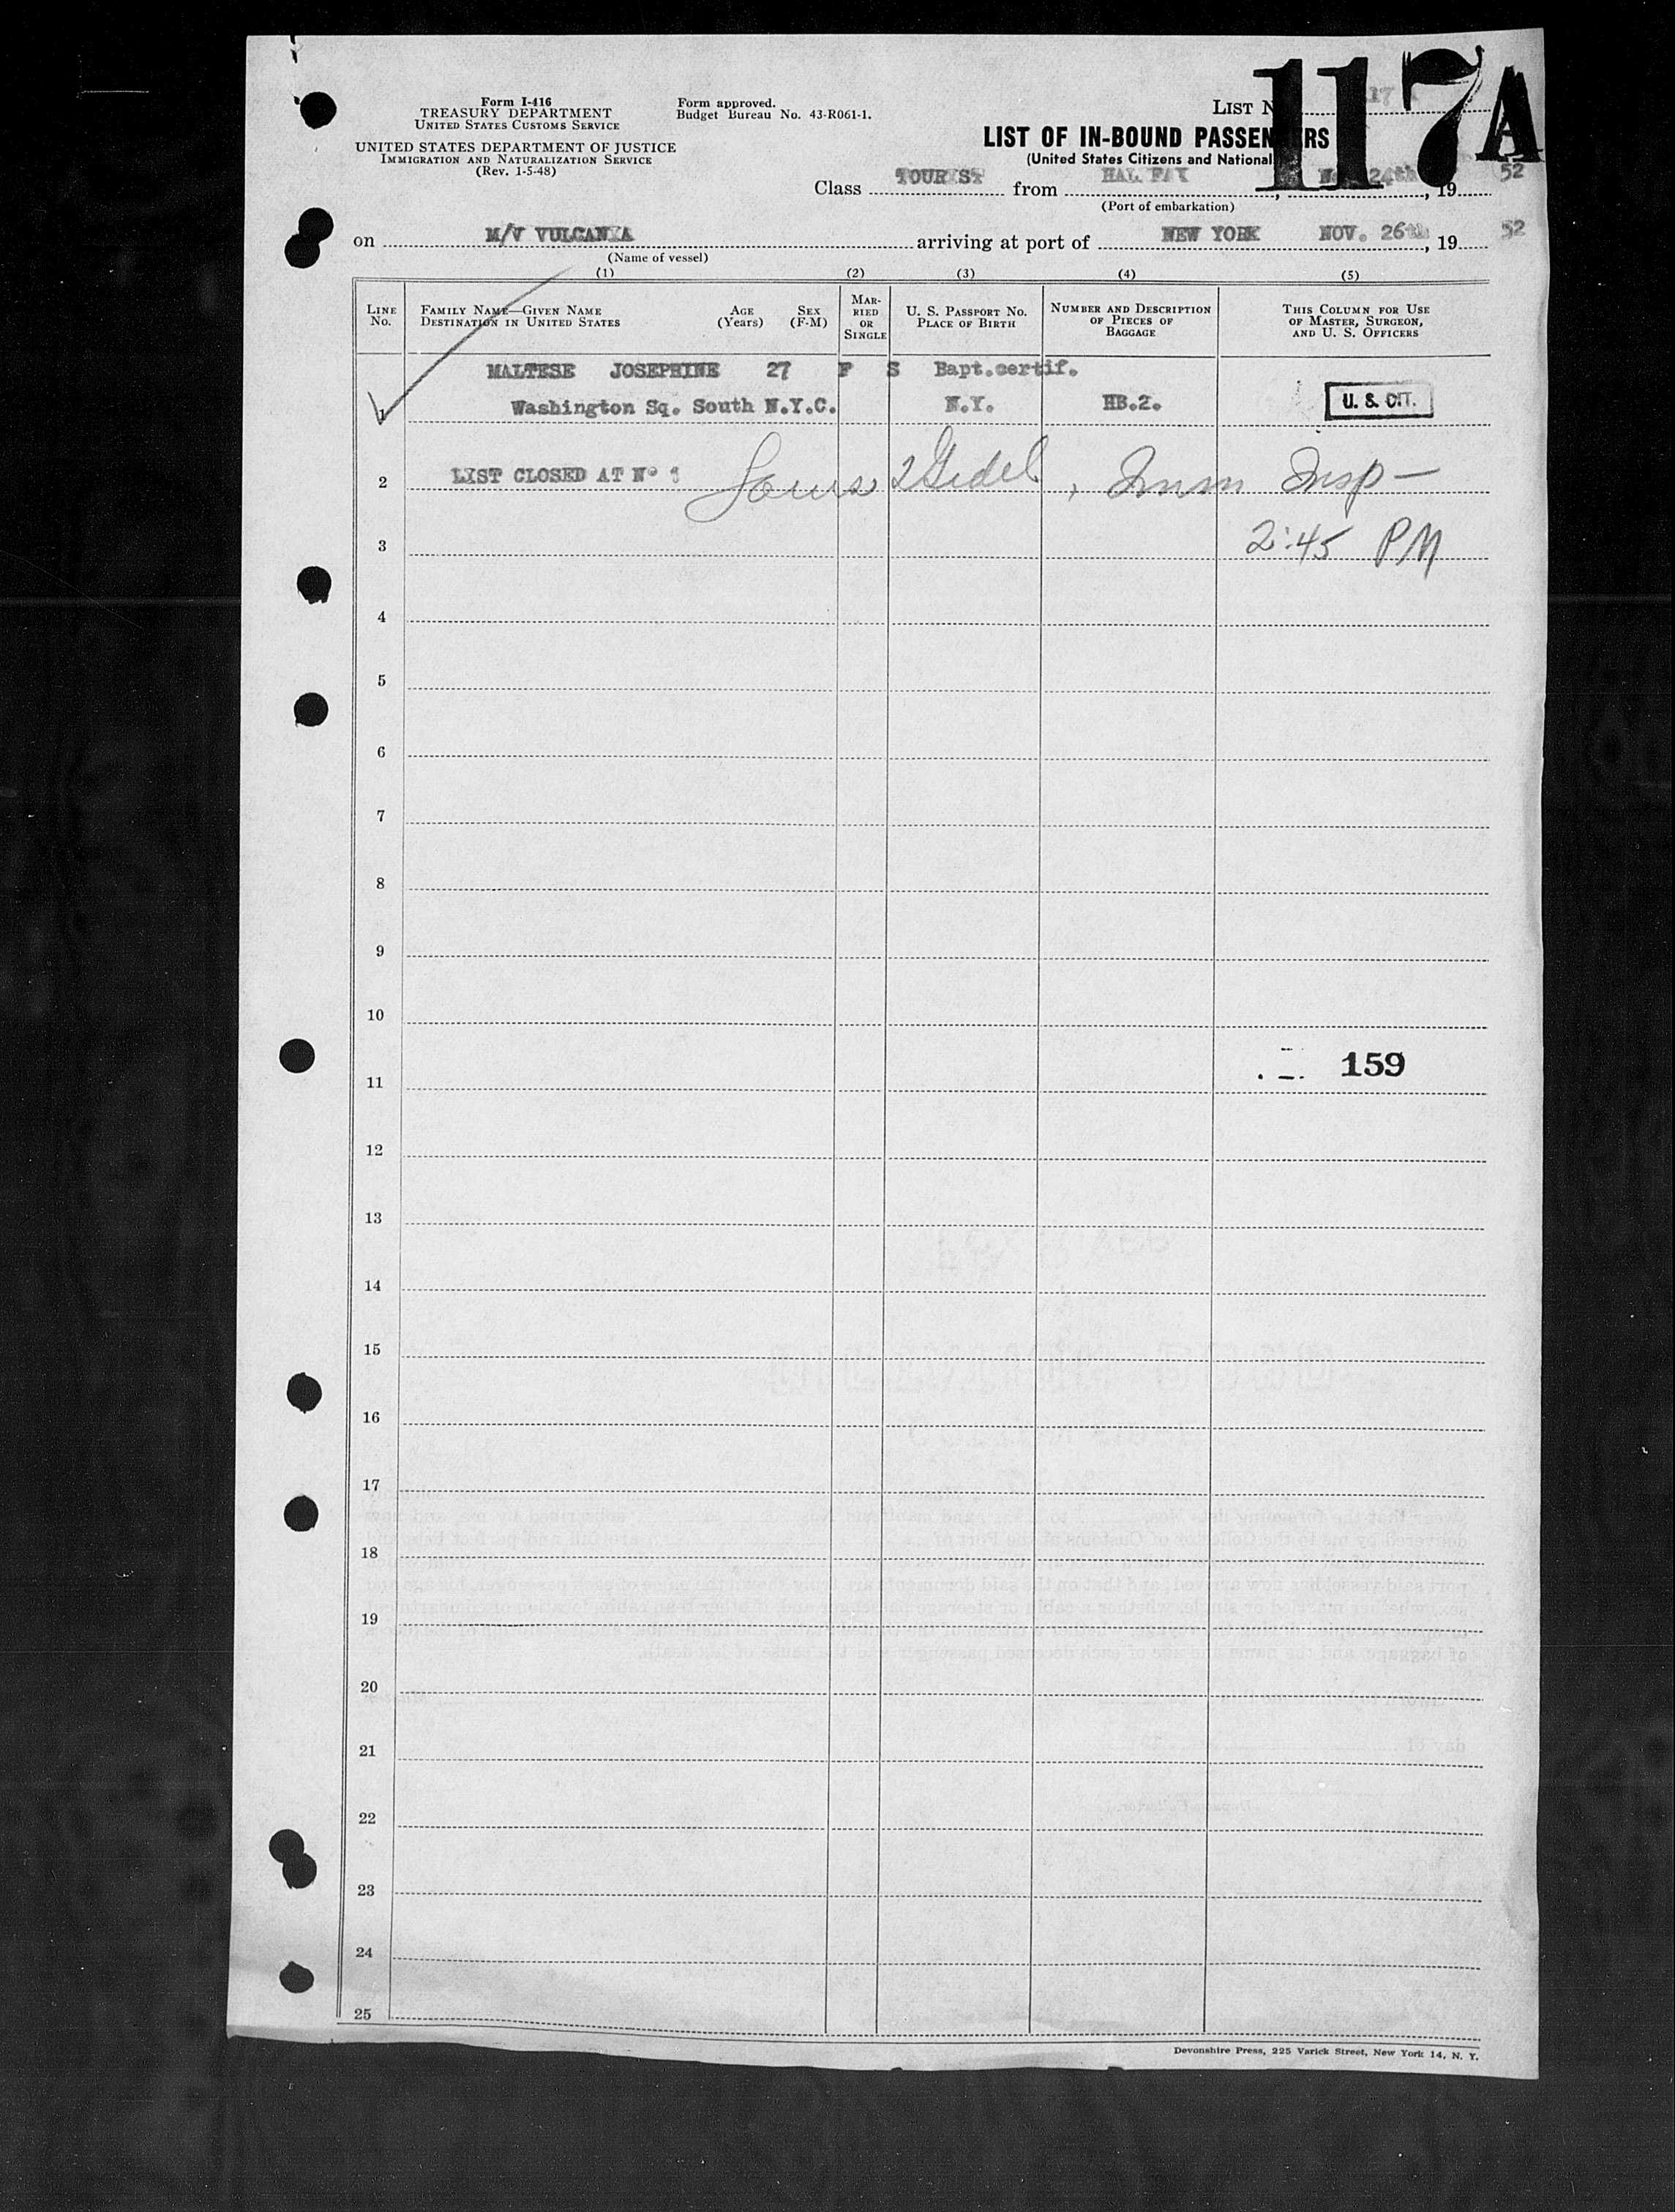 117A
Form I-416
TREASURY DEPARTMENT
UNITED STATES CUSTOMS SERVICE
UNITED STATES DEPARTMENT OF JUSTICE
IMMIGRATION AND NATURALIZATION SERVICE
(Rev. 1-5-48)
Form approved.
Budget Bureau No. 43-R061-1.
LIST N
LIST OF IN-BOUND PASSEN RS
(United States Citizens and National
Class TOURIST from HALIFAX, 24th, 19 52
(Port of embarkation)
on M/V VULCANIA arriving at port of NEW YORK NOV. 26th, 19 52
(Name of vessel)
(1) (2) (3) (4) (5)
LINE No.
FAMILY NAME—GIVEN NAME
DESTINATION IN UNITED STATES
AGE (Years)
SEX (F-M)
MAR-RIED OR SINGLE
U. S. PASSPORT NO.
PLACE OF BIRTH
NUMBER AND DESCRIPTION
OF PIECES OF
BAGGAGE
THIS COLUMN FOR USE
OF MASTER, SURGEON,
AND U. S. OFFICERS
MALTESE JOSEPHINE 27 F S Bapt.certif.
1 Washington Sq. South N.Y.C. N.Y. HB.2. U. S. CIT.
2 LIST CLOSED AT Nº 1 Louis, Imm Insp—
3 2:45 PM
4
5
6
7
8
9
10
159
11
12
13
14
15
16
17
18
19
20
21
22
23
24
25
Devonshire Press, 225 Varick Street, New York 14, N. Y.